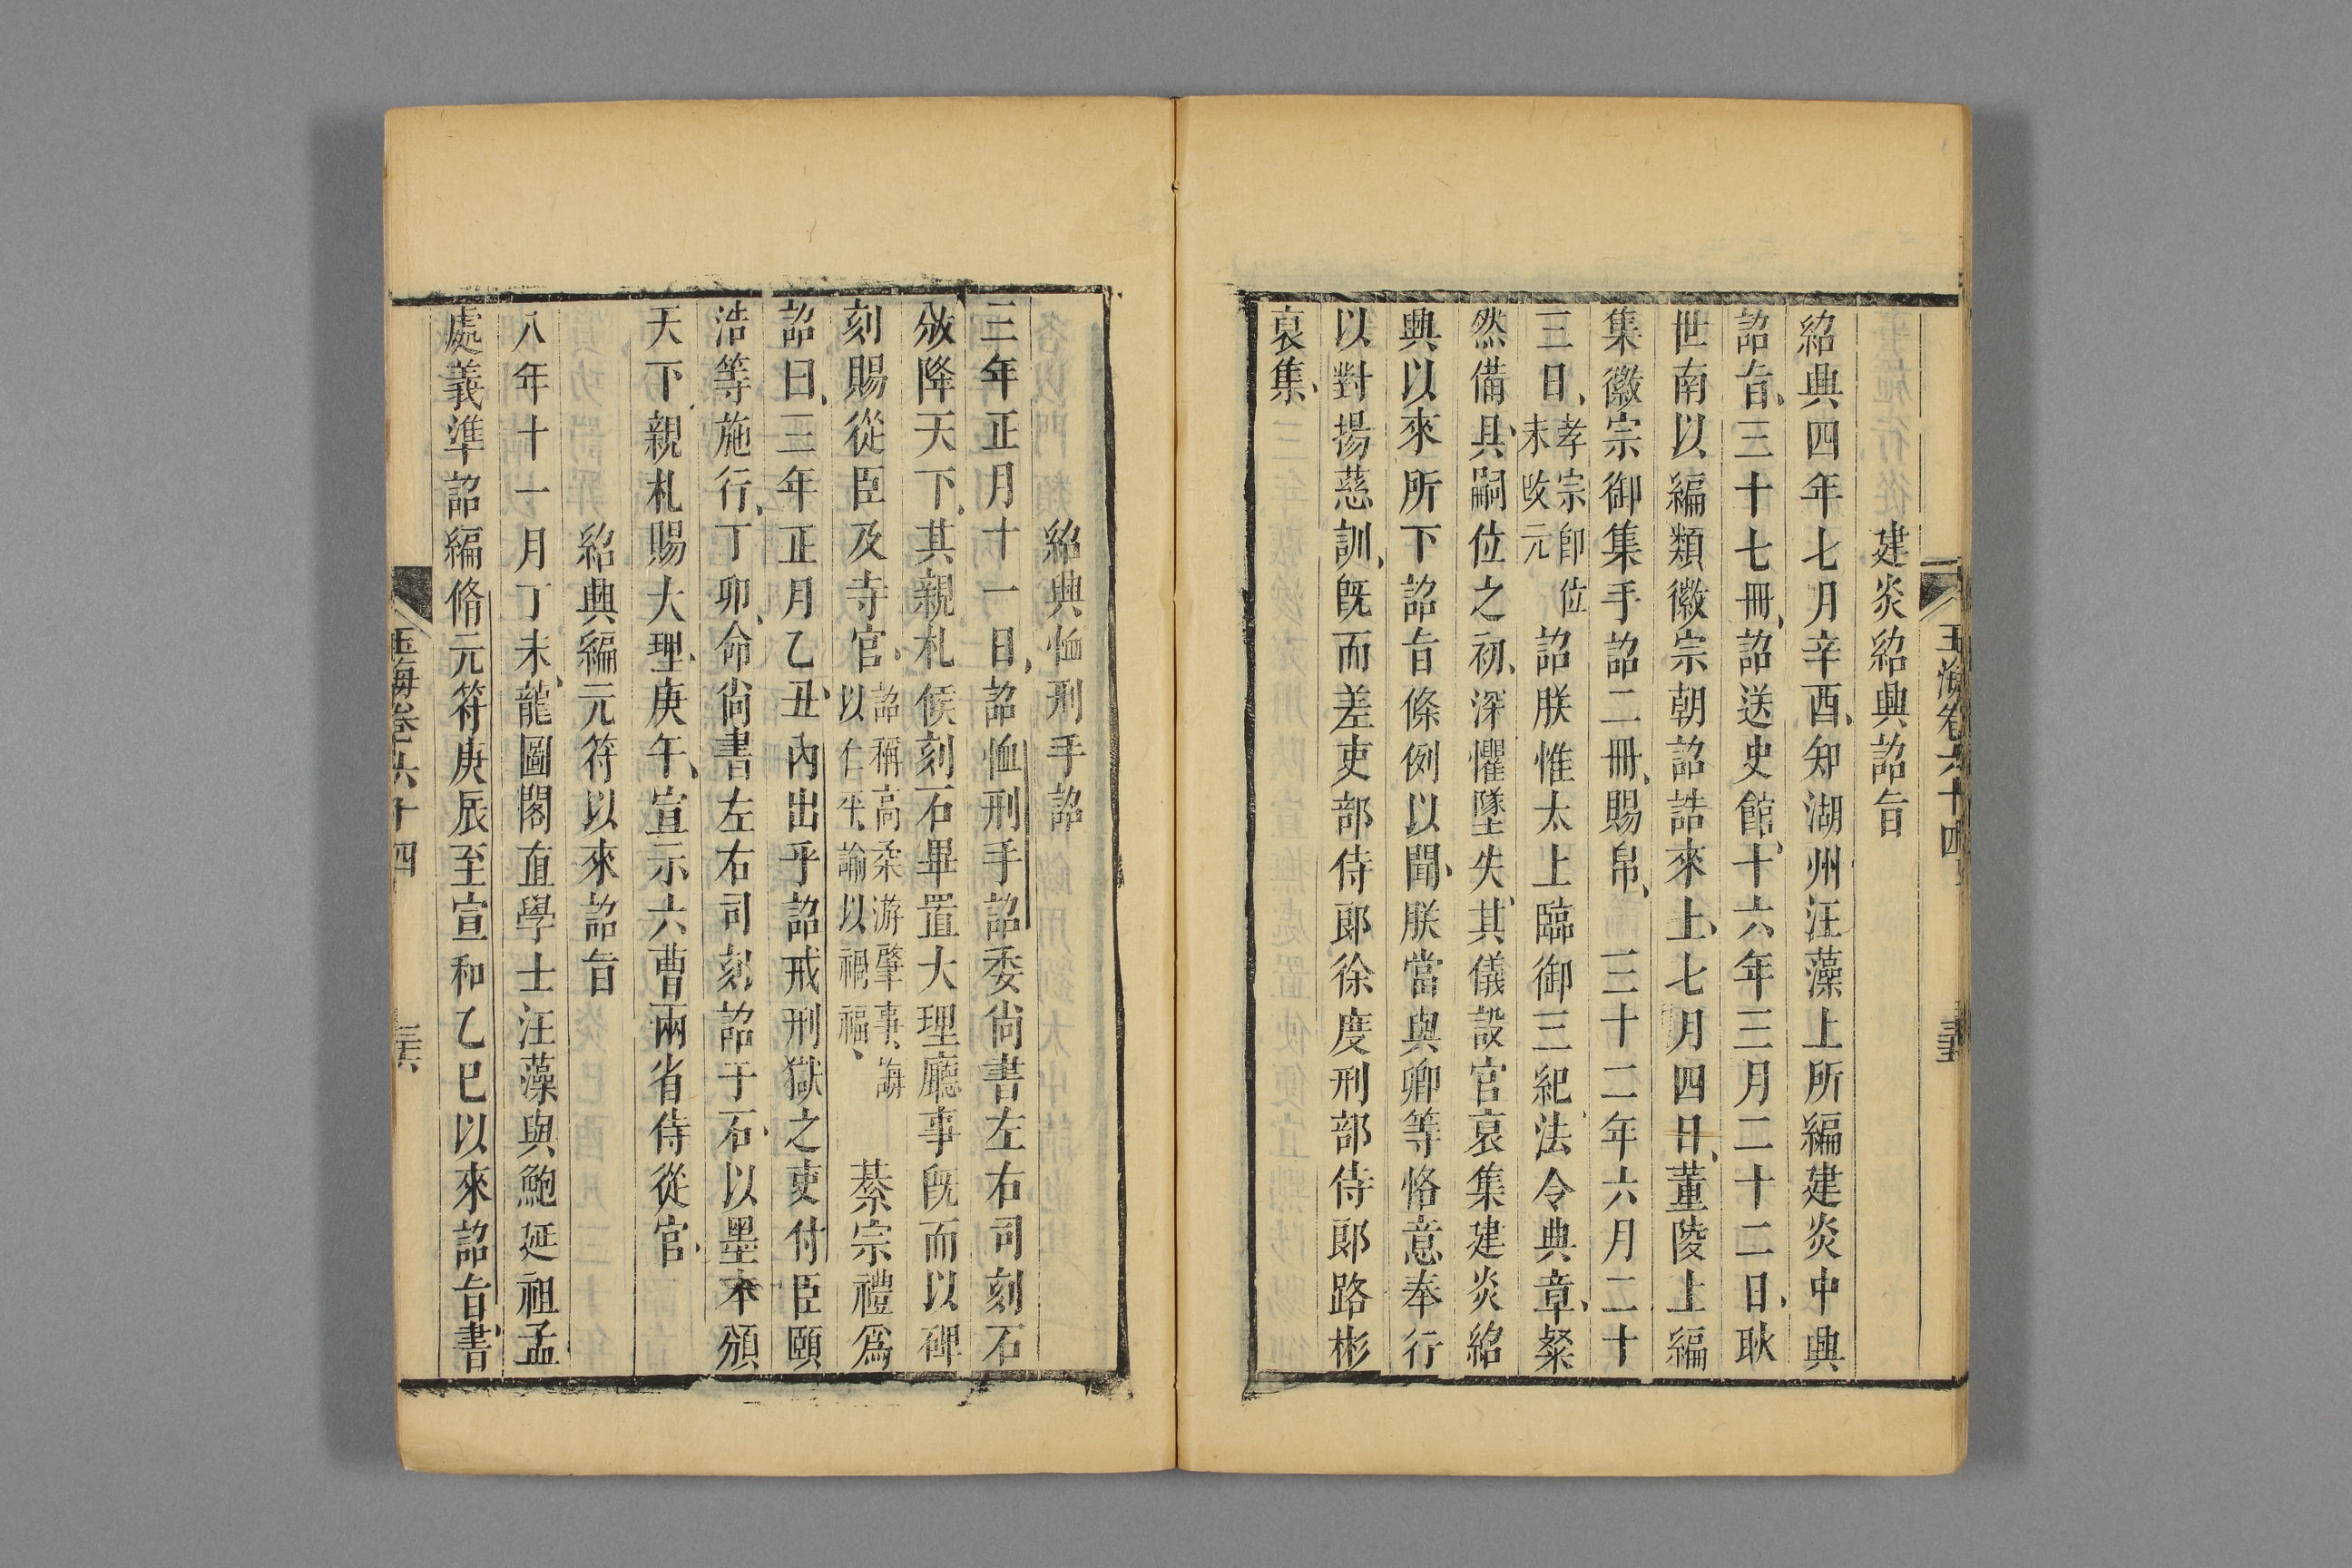 玉海卷六十四
三十五
建炎紹興詔旨
紹興四年七月辛酉知湖州汪藻上所編建炎中興
詔旨三十七冊詔送史館十六年三月二十二日耿
世南以編類徽宗朝詔誥來上七月四日董陵上編
集徽宗御集手詔二冊賜帛 三十二年六月二十
三日孝宗即位未改元詔朕惟太上臨御三紀法令典章粲
然備具嗣位之初深懼墜失其儀設官裒集建炎紹
興以來所下詔旨條例以聞朕當與卿等恪意奉行
以對揚慈訓旣而差吏部侍郞徐度刑部侍郞路彬
裒集
紹興恤刑手詔
三年正月十一日詔恤刑手詔委尙書左右司刻石
攽降天下其親札候刻石畢置大理廳事旣而以碑
刻賜從臣及寺官詔稱高柔游肇事海以仁平諭以禍福 綦宗禮爲
詔曰三年正月乙丑內出乎詔戒刑獄之吏付臣頤
浩等施行丁卯命尙書左右司刻詔于石以墨本頒
天下親札賜大理庚午宣示六曹兩省侍從官
紹興編元符以來詔旨
八年十一月丁未龍圖閣直學士汪藻與鮑延祖孟
處義準詔編脩元符庚辰至宣和乙巳以來詔旨書
玉海卷六十四
三十六